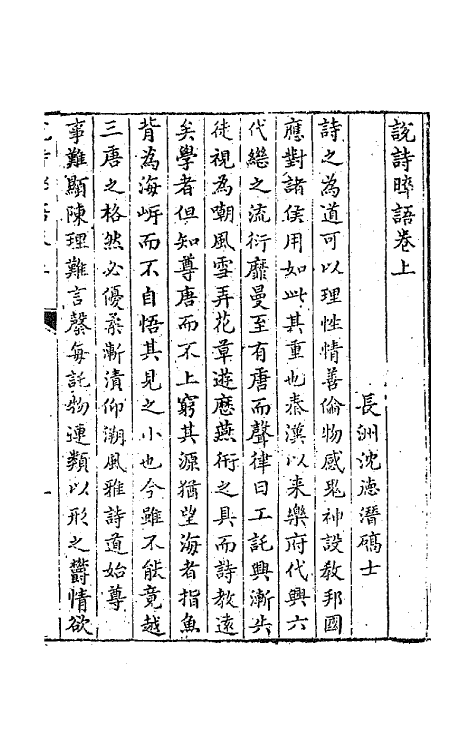 說詩晬語卷上
長洲沈德潛碻士
詩之為道可以理性情善倫物感鬼神設教邦國
應對諸侯用如此其重也秦漢以来樂府代興六
代繼之流衍靡曼至有唐而聲律日工託興漸失
徒視為嘲風雪弄花草遊歷燕衎之具而詩教遠
矣學者但知尊唐而不上窮其源猶望海者指魚
背為海㟁而不自悟其見之小也今雖不能竟越
三唐之格然必優柔漸漬仰溯風雅詩道始尊
事難顯陳理難言罄每託物連類以形之鬱情欲